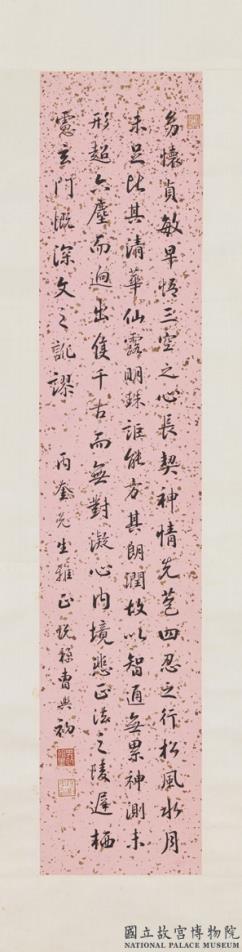 幼懷貞敏早悟三空之心長契神情先苞四忍之行松風水月
未足比其清華仙露明珠詎能方其朗潤故以智通無累神測未
形超六塵而迥出隻千古而無對凝心內境悲正法之陵遲栖
慮玄門慨深文之訛謬 丙奎先生雅正 曹典初
國立故宮博物院
NATIONAL PALACE MUSEUM